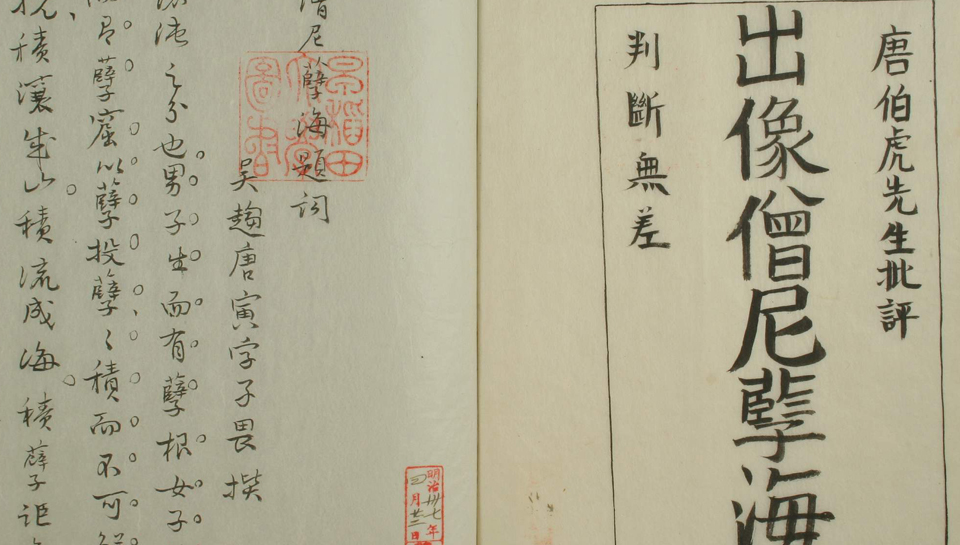 唐伯虎先生批評
出像僧尼孽海
判斷無差
僧尼孽海題詞
吳趨唐寅字子畏撰
之分也男子生而有孽根女子
孽窟以孽投孽〻積而不可
積壤成山積流成海積孽子詎
早稻田
圖書
明治卅七年
四月廿二日